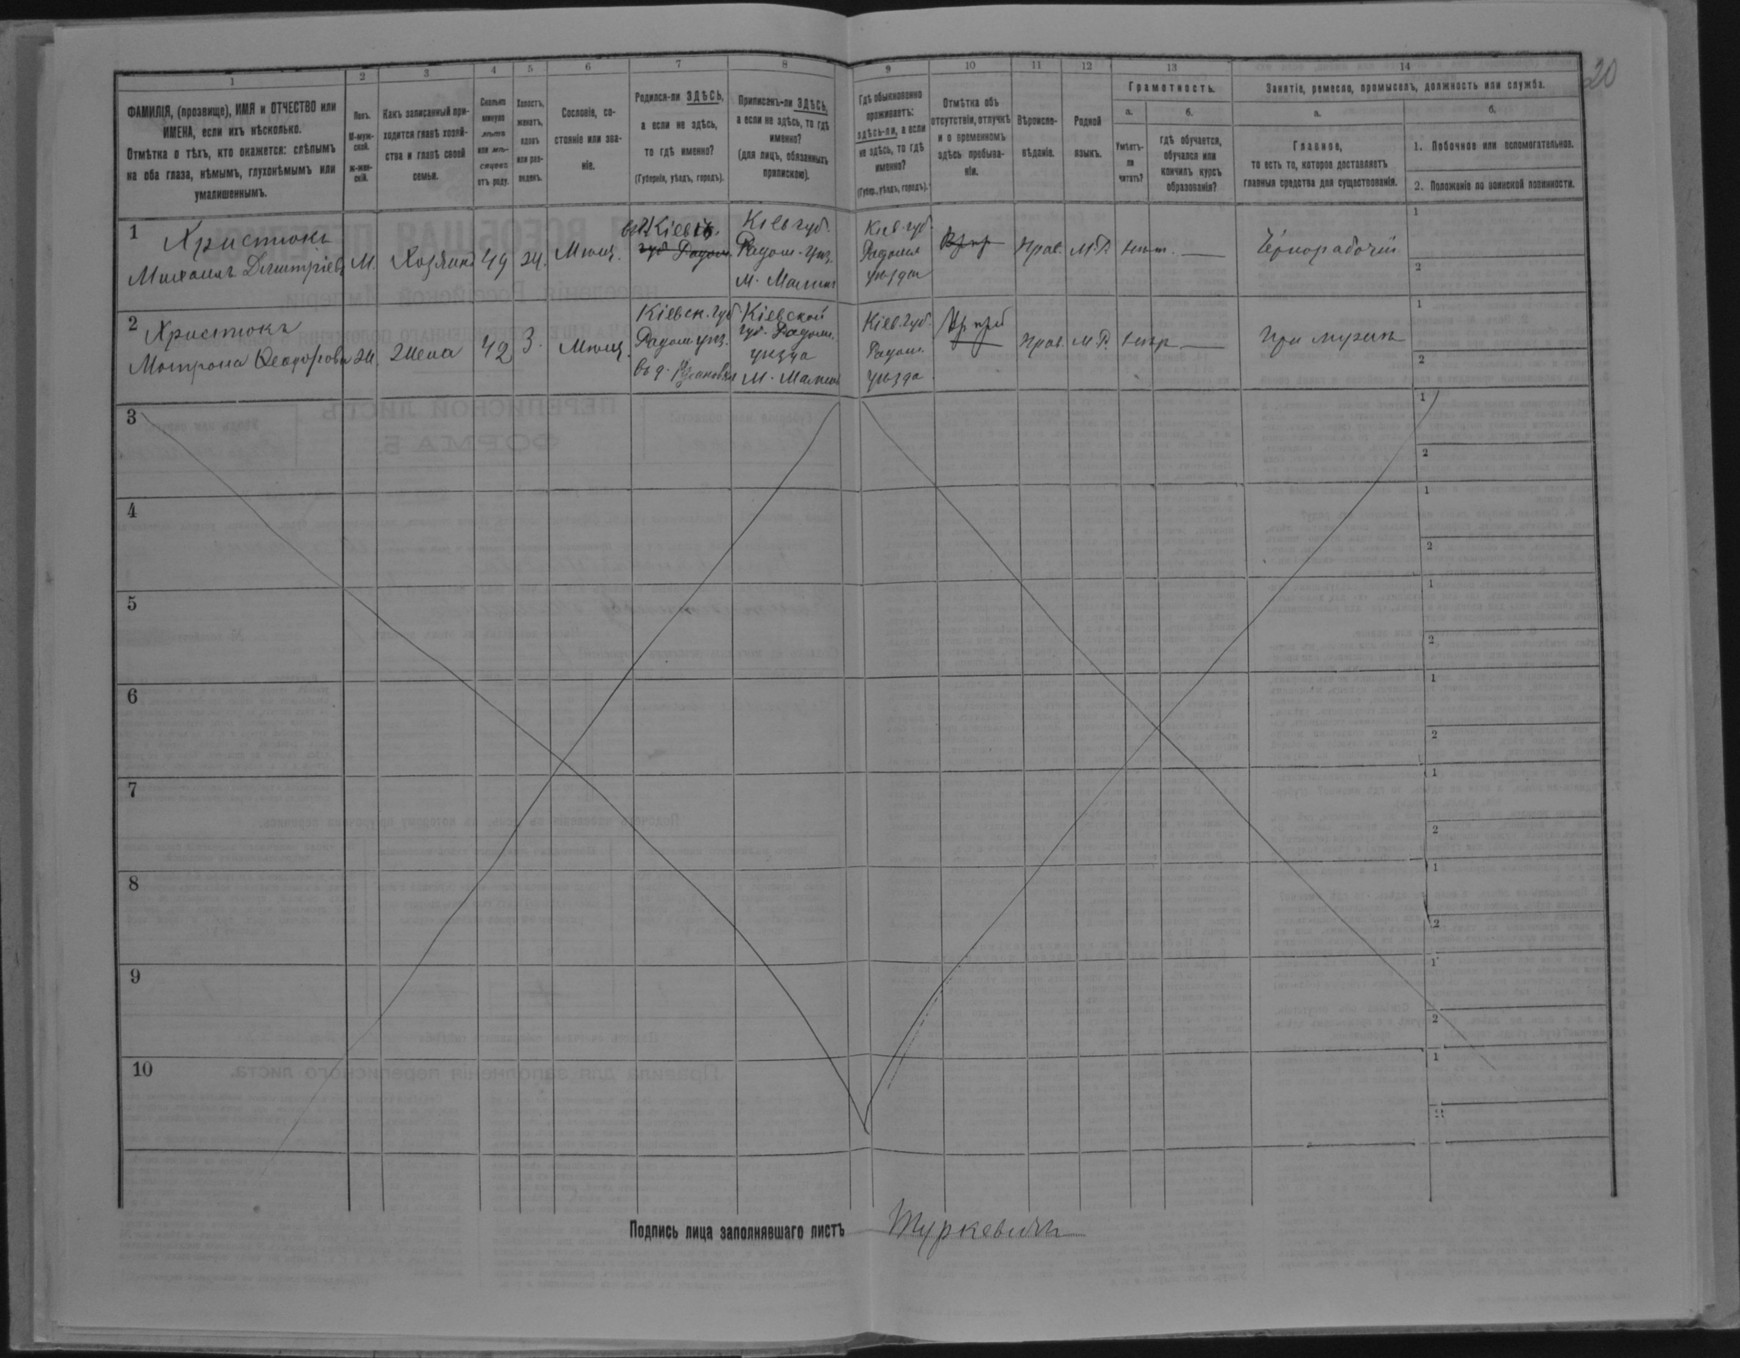 20
1 2 3 4 5 6 7 8 9 10 11 12 13 14
ФАМИЛІЯ, (прозвище), ИМЯ и ОТЧЕСТВО или
ИМЕНА, если ихъ нѣсколько.
Отмѣтка о тѣхъ, кто окажется: слѣпымъ
на оба глаза, нѣмымъ, глухонѣмымъ или
умалишеннымъ.
Полъ.
М-муж-
ской.
ж-жен-
скій.
Какъ записанный при-
ходится главѣ хозяй-
ства и главѣ своей
семьи.
Сколько
минуло
лѣтъ
или мѣ-
сяцевъ
отъ роду.
Холостъ,
женатъ,
вдовъ
или раз-
веденъ.
Сословіе, со-
стояніе или зва-
ніе.
Родился-ли ЗДѢСЬ,
а если не здѣсь,
то гдѣ именно?
(Губернія, уѣздъ, городъ).
Приписанъ-ли ЗДѢСЬ,
а если не здѣсь, то гдѣ
именно?
(для лицъ, обязанныхъ
припискою).
Гдѣ обыкновенно
проживаетъ:
здѣсь-ли, а если
не здѣсь, то гдѣ
именно?
(Губер., уѣздъ, городъ).
Отмѣтка объ
отсутствіи, отлучкѣ
и о временномъ
здѣсь пребыва-
ніи.
Вѣроиспо-
вѣданіе.
Родной
языкъ.
Грамотность.
а.
Умѣетъ-
ли
читать?
б.
гдѣ обучается,
обучался или
кончилъ курсъ
образованія?
Занятіе, ремесло, промыселъ, должность или служба.
а.
Главное,
то есть то, которое доставляетъ
главныя средства для существованія.
б.
1. Побочное или вспомогательное.
2. Положеніе по воинской повинности.
1
Христюкъ
Михаилъ Дмитріев
М.
Хозяинъ
49
Ж.
Мѣщ.
Кіевъ
губ Радом.
Кіев губ.
Радом. уѣз.
м. Малин
Кіев. губ.
Радомы
уѣзда
Прав.
М.Р.
Чернорабочій
1
2
2
Христюкъ
Матрона Феодорова
Ж.
Жена
42
З.
Мѣщ.
Кіевск. губ.
Радом уѣз.
Кіевской
губ. Радом.
уѣзда
М. Малин
Кіев. губ.
Радом.
уѣзда
Прав.
М.Р.
При мужѣ
1
2
3
1
2
4
1
2
5
1
2
6
1
2
7
1
2
8
1
2
9
1
2
10
1
2
Подпись лица заполнявшаго листъ Туркевичъ